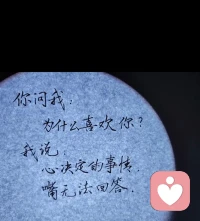 你问我:
为什么喜欢你?
我说:
心决定的事情.
嘴无法回答.